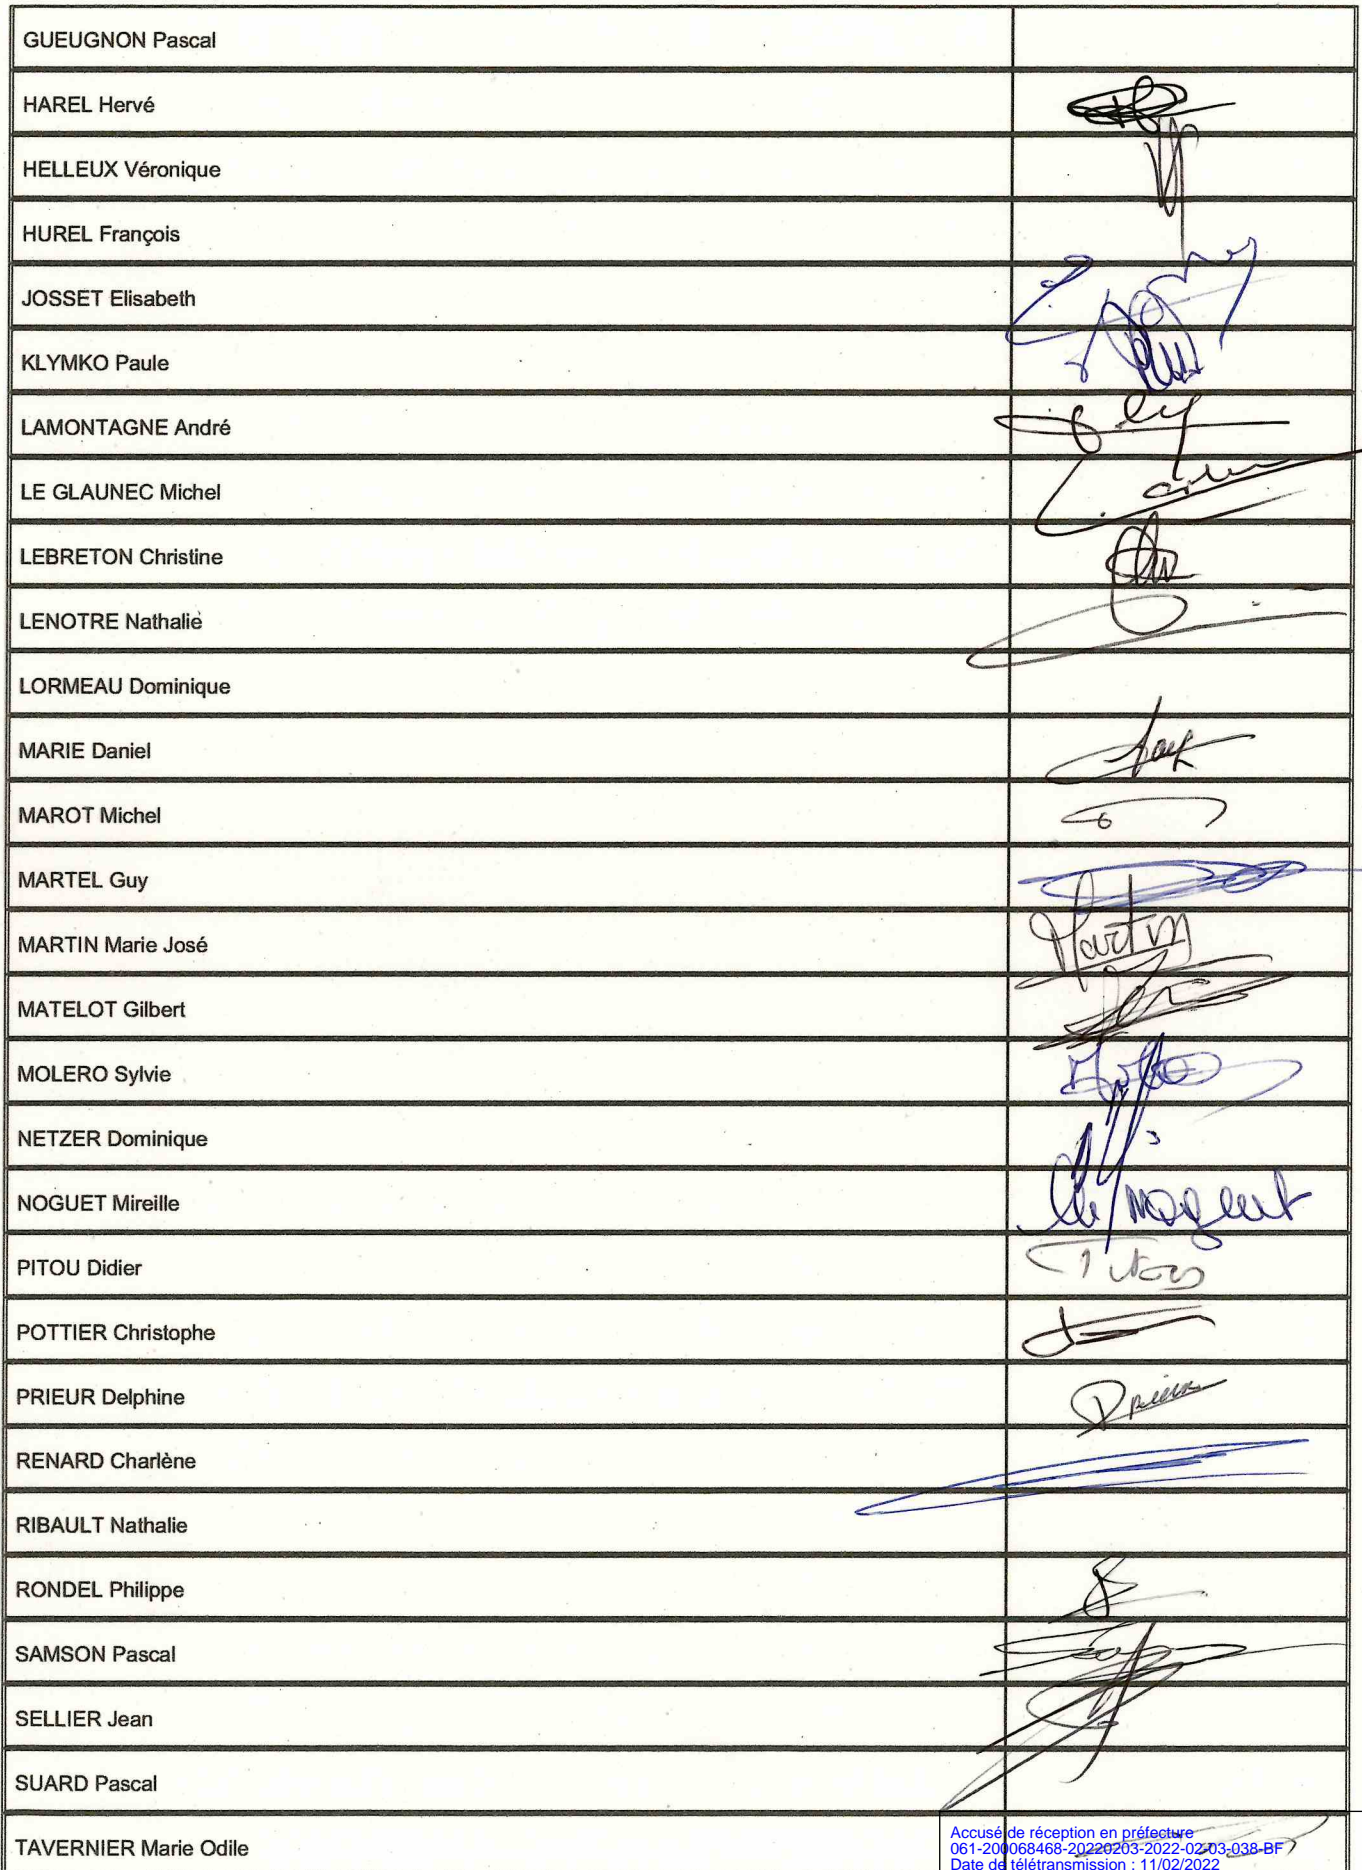 GUEUGNON Pascal
HAREL Hervé
HELLEUX Véronique
HUREL François
JOSSET Elisabeth
KLYMKO Paule
LAMONTAGNE André
LE GLAUNEC Michel
LEBRETON Christine
LENOTRE Nathalie
LORMEAU Dominique
MARIE Daniel
MAROT Michel
MARTEL Guy
MARTIN Marie José
Martin
MATELOT Gilbert
MOLERO Sylvie
NETZER Dominique
NOGUET Mireille
PITOU Didier
POTTIER Christophe
PRIEUR Delphine
RENARD Charlène
RIBAULT Nathalie
RONDEL Philippe
SAMSON Pascal
SELLIER Jean
SUARD Pascal
TAVERNIER Marie Odile
Accusé de réception en préfecture
061-200068468-20220203-2022-02-03-038-BF
Date de télétransmission : 11/02/2022